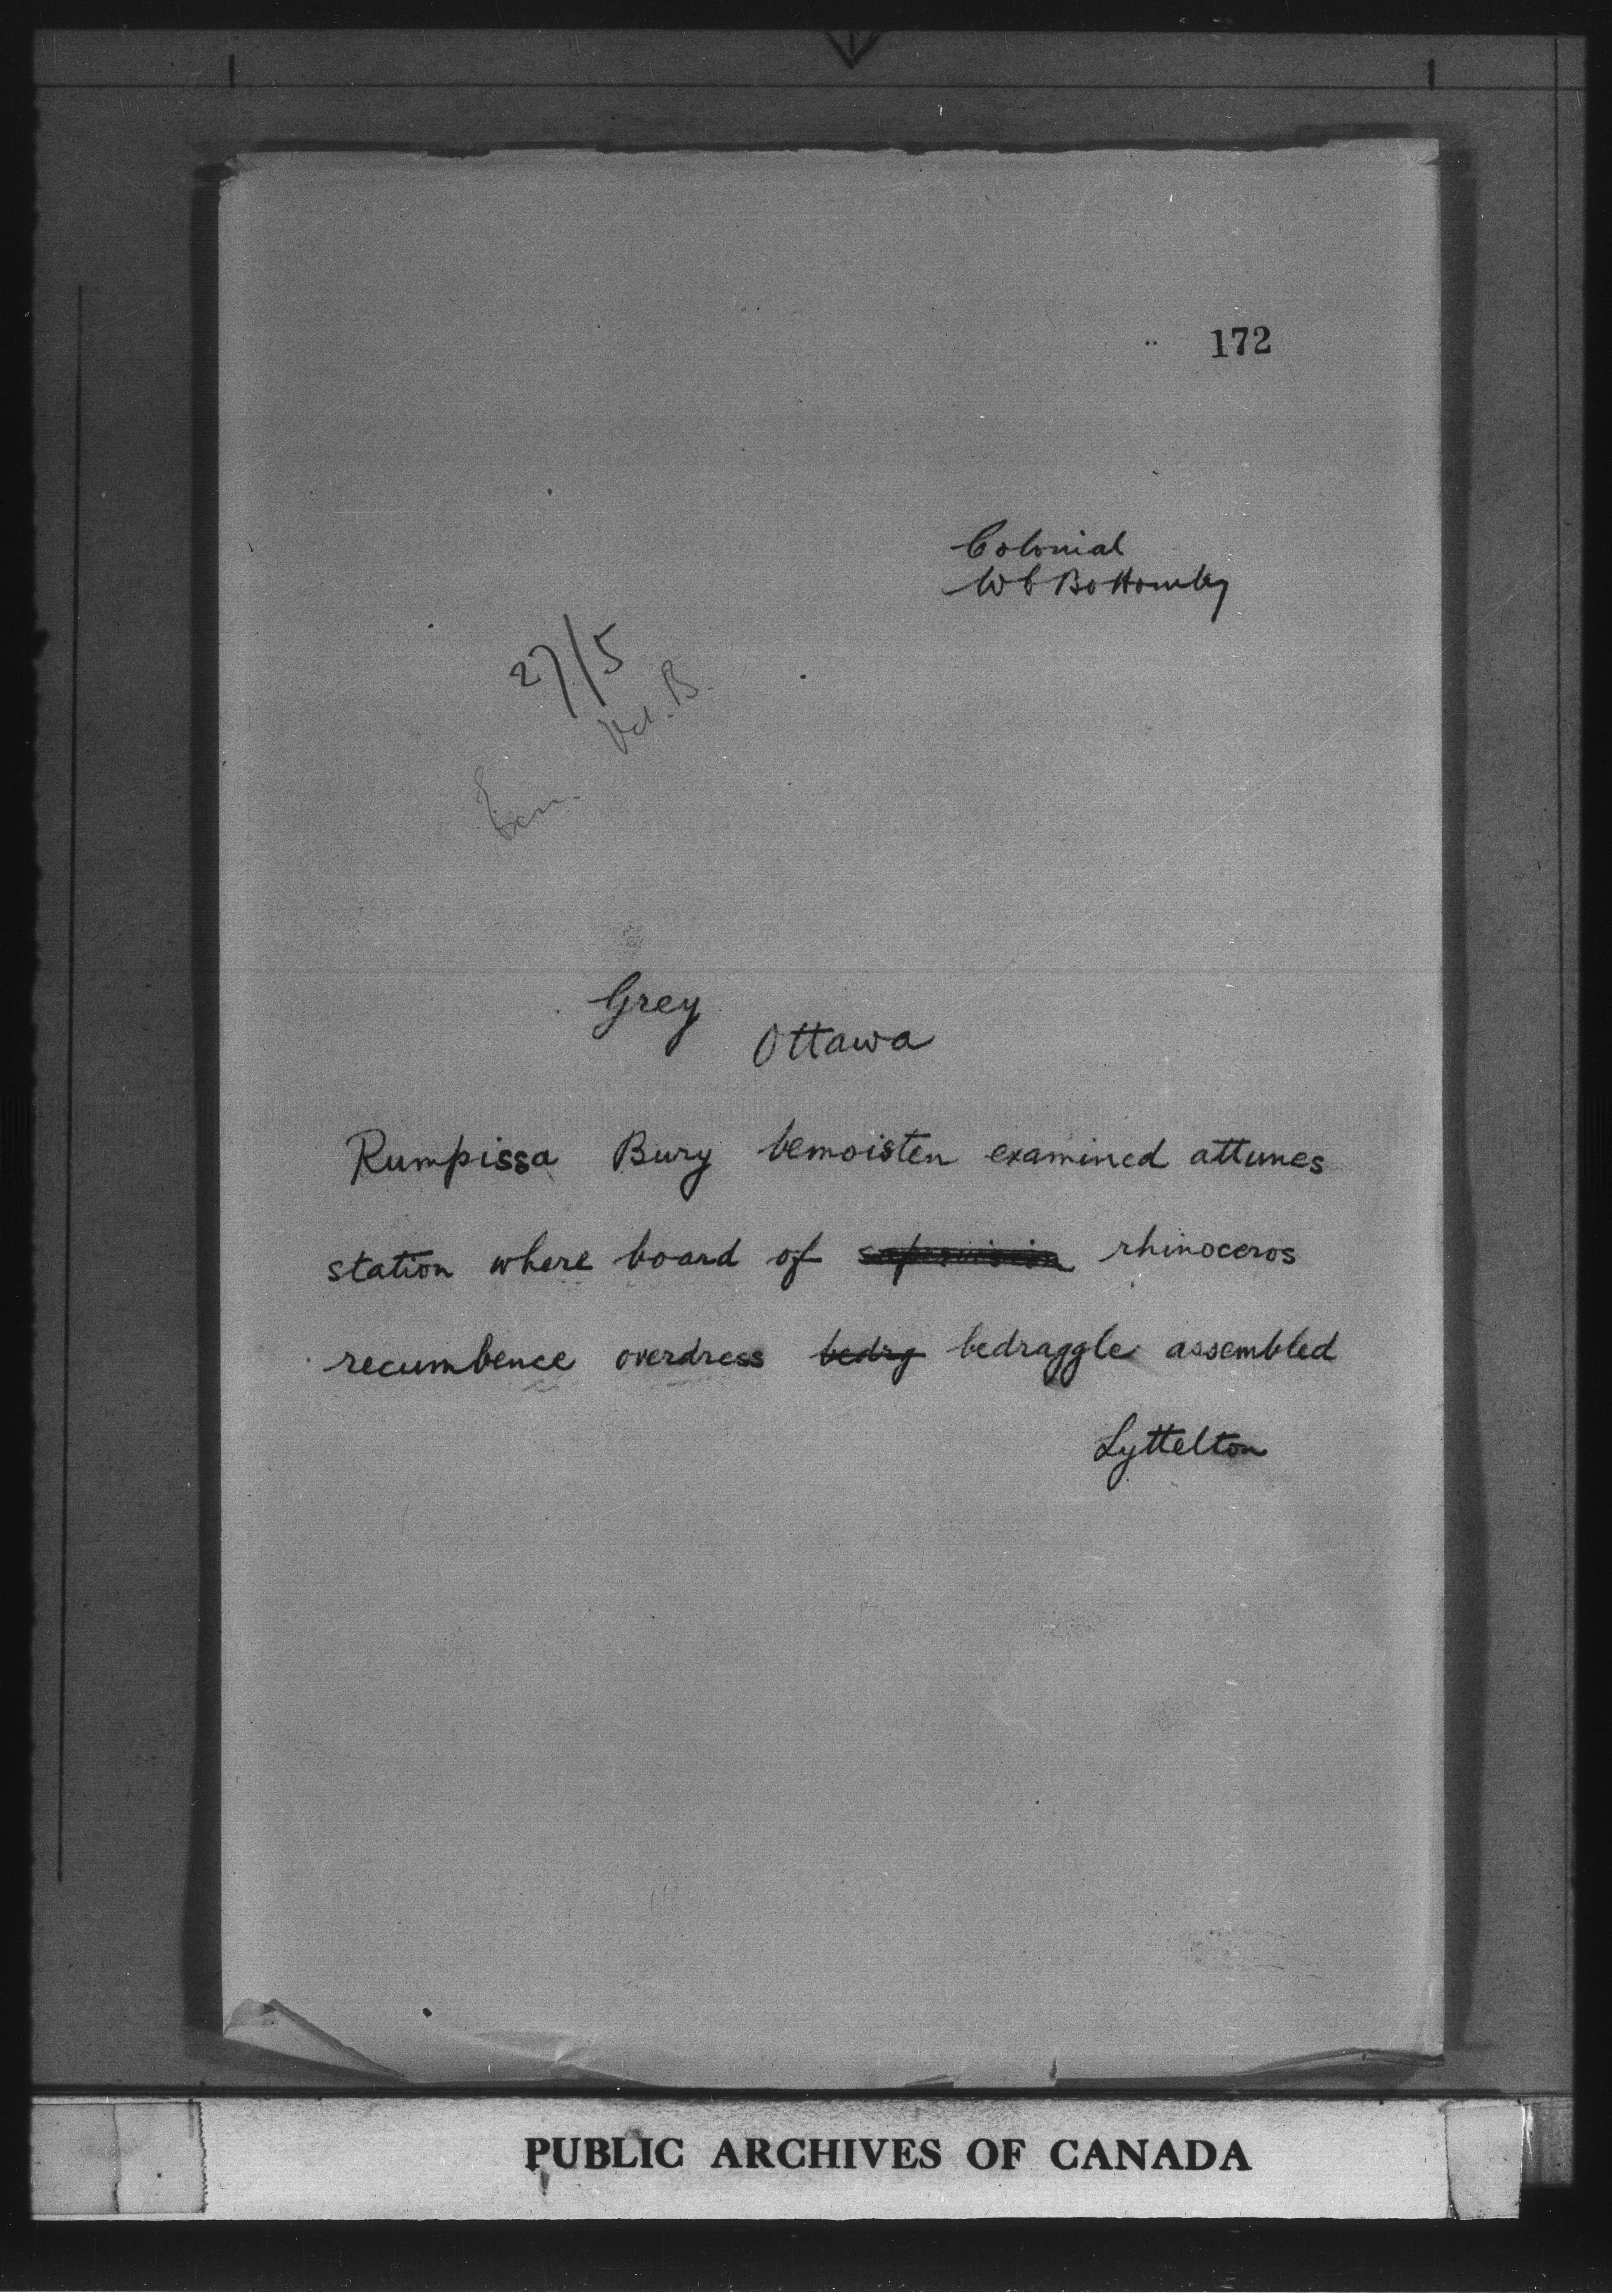 172
Colonial
W C Bottomley
27/5
Grey
Ottawa
Rumpissa Bury bemoisten examined attunes
station where board of supervision rhinoceros
recumbence overdress bedrg bedraggle assembled
Lyttelton
PUBLIC ARCHIVES OF CANADA